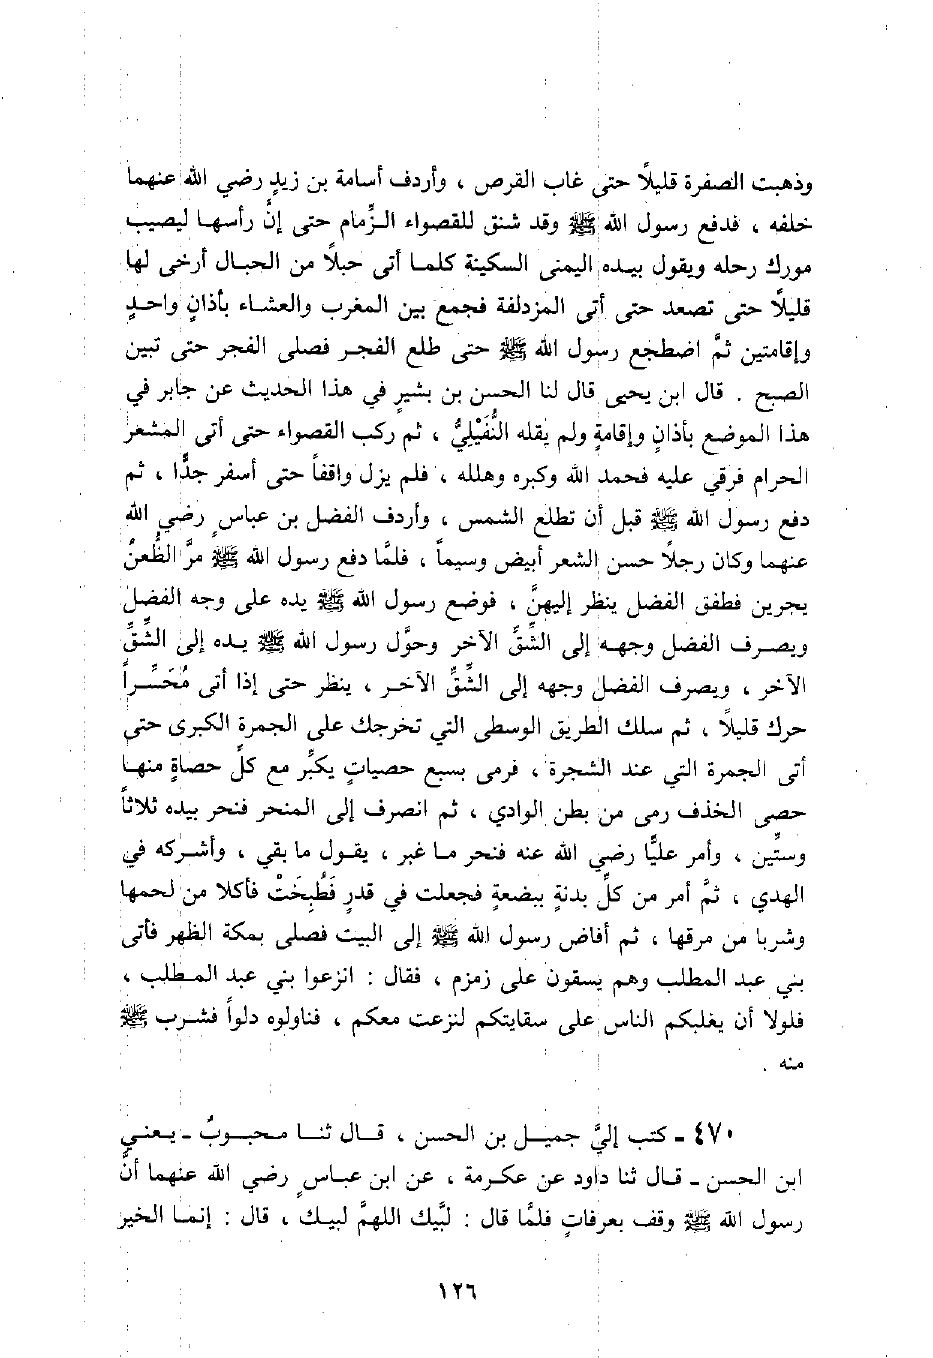 وذهبت الصفرة قليلاً حتى غاب القرص ، وأردف أسامة بن زيدٍ رضي الله عنهما
خلفه ، فدفع رسول الله ﷺ وقد شنق للقصواء الزِّمام حتى إنَّ رأسها ليصيب
مورك رحله ويقول بيده اليمنى السكينة كلما أتى حبلاً من الحبال أرخى لها
قليلاً حتى تصعد حتى أتى المزدلفة فجمع بين المغرب والعشاء بأذانٍ واحدٍ
وإقامتين ثمَّ اضطجع رسول الله ﷺ حتى طلع الفجر فصلى الفجر حتى تبين
الصبح . قال ابن يحيى قال لنا الحسن بن بشيرٍ في هذا الحديث عن جابر في
هذا الموضع بأذانٍ وإقامةٍ ولم يقله النُّفَيْلِيُّ ، ثم ركب القصواء حتى أتى المشعر
الحرام فرقي عليه فحمد الله وكبره وهلله ، فلم يزل واقفاً حتى أسفر جدًّا ، ثم
دفع رسول الله ﷺ قبل أن تطلع الشمس ، وأردف الفضل بن عباسٍ رضي الله
عنهما وكان رجلاً حسن الشعر أبيض وسيماً ، فلمَّا دفع رسول الله ﷺ مرَّ الظُّعنُ
يجرين فطفق الفضل ينظر إليهنَّ ، فوضع رسول الله ﷺ يده على وجه الفضل
ويصرف الفضل وجهه إلى الشِّقِّ الآخر وحوَّل رسول الله ﷺ يده إلى الشِّقِّ
الآخر ، ويصرف الفضل وجهه إلى الشِّقِّ الآخر ، ينظر حتى إذا أتى مُحَسِّراً
حرك قليلاً ، ثم سلك الطريق الوسطى التي تخرجك على الجمرة الكبرى حتى
أتى الجمرة التي عند الشجرة ، فرمى بسبع حصياتٍ يكبِّر مع كلِّ حصاةٍ منها
حصى الخذف رمى من بطن الوادي ، ثم انصرف إلى المنحر فنحر بيده ثلاثاً
وستِّين ، وأمر عليًّا رضي الله عنه فنحر ما غبر ، يقول ما بقي ، وأشركه في
الهدي ، ثمَّ أمر من كلِّ بدنة ببضعةٍ فجعلت في قدرٍ فَطُبِخَتْ فأكلا من لحمها
وشربا من مرقها ، ثم أفاض رسول الله ﷺ إلى البيت فصلى بمكة الظهر فأتى
بني عبد المطلب وهم يسقون على زمزم ، فقال : انزعوا بني عبد المطلب ،
فلولا أن يغلبكم الناس على سقايتكم لنزعت معكم ، فناولوه دلواً فشرب ﷺ
منه .
٤٧٠ - كتب إليَّ جميل بن الحسن ، قال ثنا محبوبٌ - يعني
ابن الحسن - قال ثنا داود عن عكرمة ، عن ابن عباسٍ رضي الله عنهما أنَّ
رسول الله ﷺ وقف بعرفاتٍ فلمَّا قال : لبَّيك اللهمَّ لبيك ، قال : إنما الخير
١٢٦